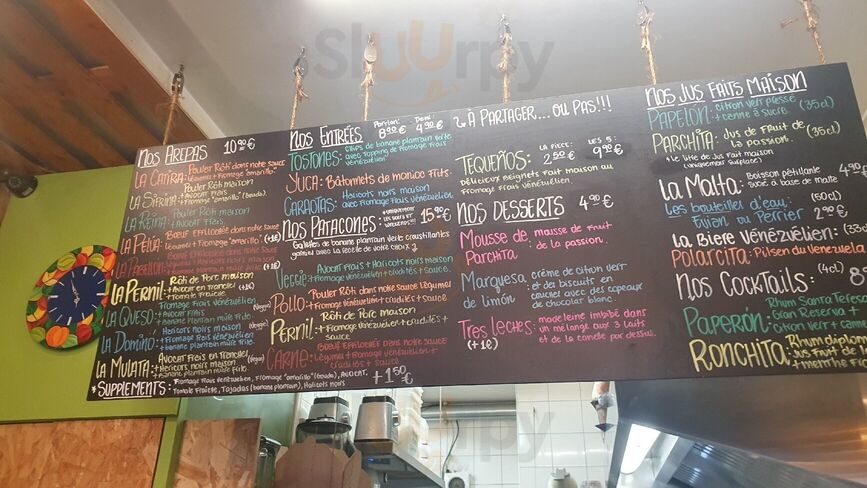 Nos Arepas 10.90 €
La Catira: Poulet Rôti dans notre sauce
Légumes + Fromage "amarillo" (gouda).
La Sifrina: Poulet Rôti maison
+ Avocat mais
+ Fromage "amarillo" (gouda).
La Reina: Poulet Rôti maison
+ Avocat frais.
La Pelúa: Boeuf effilochée dans notre sauce
Légumes + Fromage "amarillo" (+1€)
La Pabellón: Boeuf effilochée dans
La Pernil: Rôti de Porc maison
+ Avocat en tranche (+1€)
+ tomate fraîche
La Queso: Fromage frais Vénézuélien
+ Avocat frais
+ Banane plantain mûre frite
La Domino: Haricots noirs maison
+ Fromage frais Vénézuélien
+ banane plantain frite.
La Mulata: Avocat frais en tranche
+ Haricots noirs maison
+ Banane plantain mûre frite (vegan)
* Supplements: Fromage frais Vénézuélien, Fromage "amarillo" (gouda), Avocat,
Tomate fraîche, Tajadas (banane plantain), Haricots noirs +1.50 €
Nos Entrées Portion: 8.90 € Demi: 4.90 €
Tostones: Chips de banane plantain verte
avec topping de fromage frais
Vénézuélien
Yuca: Bâtonnets de manioc frits.
Caraotas: Haricots noirs maison
avec fromage frais Vénézuélien.
Nos Patacones: les soirs et weekends 15.90 €
Galettes de banane plantain verte croustillantes
garnies avec la recette de votre choix :)
Veggie: Avocat frais + Haricots noirs maison
+ Fromage Vénézuélien + crudités + sauce.
Pollo: Poulet Rôti dans notre sauce légumes
+ Fromage Vénézuélien + crudités + sauce
Pernil: Rôti de Porc maison
+ Fromage Vénézuélien + crudités +
sauce
Carne: Boeuf effilochée dans notre sauce
Légumes + Fromage Vénézuélien +
crudités + sauce
À partager... ou pas!!!
Tequeños: La pièce: 2.50 € Les 5: 9.90 €
Délicieux beignets fait maison au
fromage frais Vénézuélien.
Nos Desserts 4.90 €
Mousse de Parchita: mousse de fruit
de la passion.
Marquesa de limón: crème de citron vert
et des biscuits en
couches avec des copeaux
de chocolat blanc.
Tres leches: madeleine imbibée dans
(+1€) un mélange aux 3 laits
et de la canelle par dessus.
Nos Jus Faits Maison
Papelón: citron vert pressé (35cl)
+ canne à sucre
Parchita: Jus de fruit de (35cl)
la passion.
+ Le litre de jus fait maison
(uniquement sur place)
La Malta: Boisson pétillante 4.90 €
sucrée à base de malte
Les bouteilles d'eau: (50cl)
Evian ou Perrier 2.90 €
La Bière Vénézuélien: (35c
Polarcita: Pilsen du Venezuela
Nos Cocktails: (40cl) 8.
Paperón: Rhum Santa Teres
Gran Reserva +
citron vert + cann
Ronchita: Rhum diplom
Jus fruit de la
+ menthe fra
Sluurpy